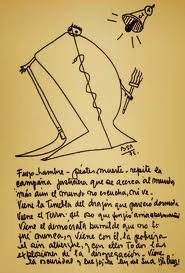 Fuego, hambre - pestes, muerte - repite la
campana justiciera que se acerca al mundo,
más aun el mundo no escucha, ni ve.
Viene la Tiniebla del dragón que pareció dormido
Viene el Terror del oso que fingió amaestramiento
Viene el demócrata humilde que no lo
fué nunca, y viene con él la pobreza
el sin albergue, y con ellos Todas las
explosiones de la disgregación. Viene
la